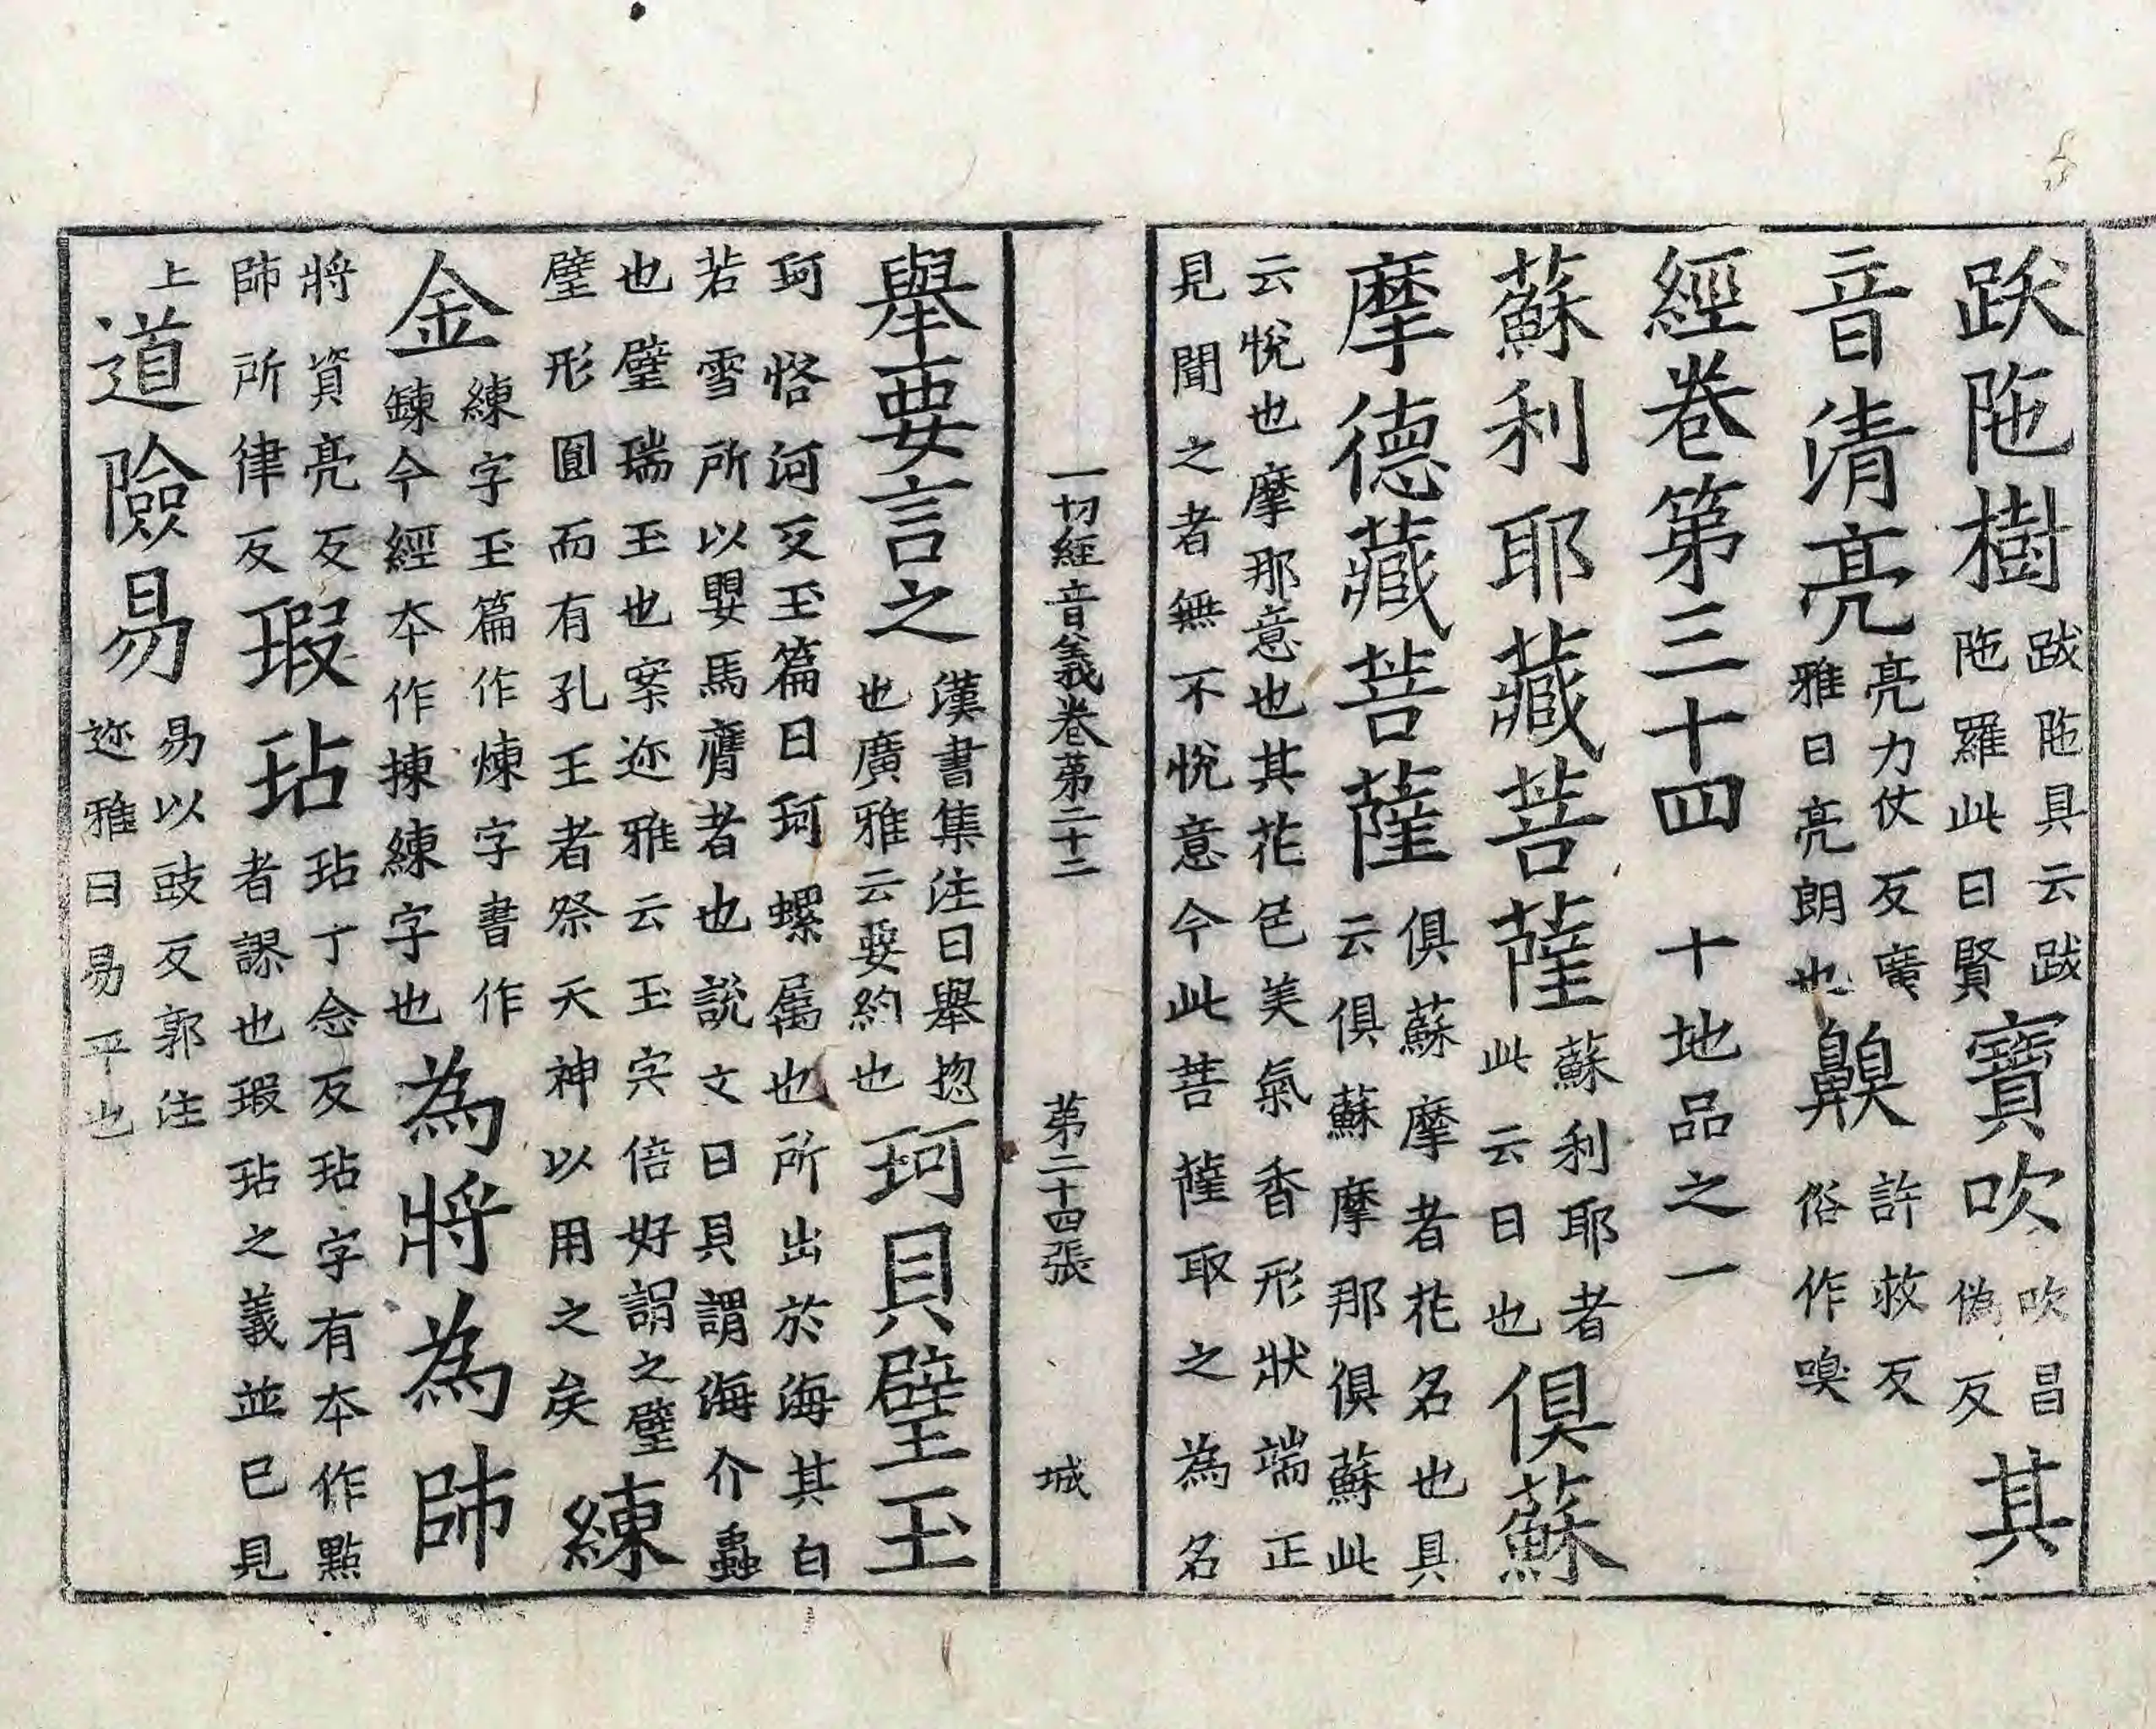 跋陁樹跋陁具云跋
陁羅此曰賢寶吹吹昌
偽反其
音清亮亮力仗反廣
雅曰亮朗也齅許救反
俗作嗅
經卷第三十四　十地品之一
蘇利耶藏菩薩蘇利耶者
此云日也俱蘇
摩德藏菩薩俱蘇摩者花名也具
云俱蘇摩那俱蘇此
云悅也摩那意也其花色美氣香形狀端正
見聞之者無不悅意今此菩薩取之為名
一切經音義卷苐二十二　苐二十四張　城
舉要言之漢書集注曰舉揔
也廣雅云要約也珂貝璧玉
珂恪河反玉篇曰珂螺属也所出於海其白
若雪所以嬰馬膺者也說文曰貝謂海介蟲
也璧瑞玉也案迩雅云玉宍倍好謂之璧
璧形圓而有孔王者祭天神以用之矣練
金練字玉篇作煉字書作
鍊今經本作揀練字也為將為師
將資亮反
師所律反瑕玷玷丁念反玷字有本作點
者謬也瑕玷之義並已見
上道險易易以豉反郭注
迩雅曰易平也